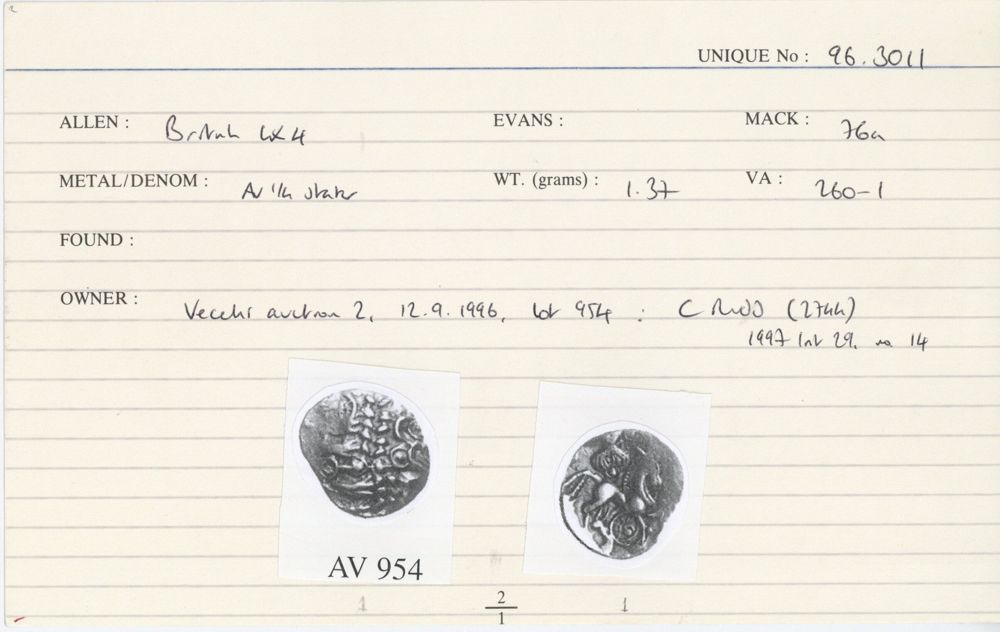 UNIQUE No : 96.3011
ALLEN : British LX4 EVANS : MACK : 76a
METAL/DENOM : AV 1/4 stater WT. (grams) : 1.37 VA : 260-1
FOUND :
OWNER : Vecchi auction 2, 12.9.1996, lot 954 : C Rudd (2744)
1997 list 29, no 14
AV 954
1 2/1 1